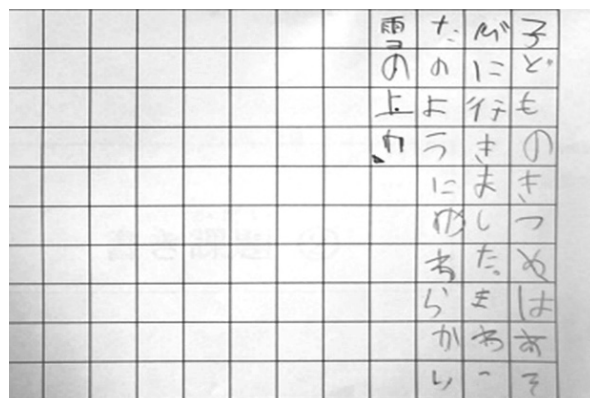 子どものきつぬはあそ
びに行きました。まわっ
たのようにやわらかい
雪の上